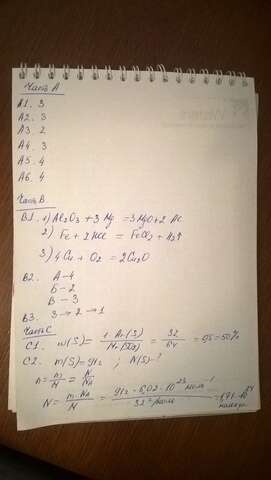 Часть А
А1. 3
А2. 3
А3. 2
А4. 3
А5. 4
А6. 4
Часть В
В1. 1) Al₂O₃ + 3 Mg = 3 MgO + 2 Al
2) Fe + 2 HCl = FeCl₂ + H₂↑
3) 4Cu + O₂ = 2Cu₂O
В2. А – 4
Б – 2
В – 3
В3. 3 → 2 → 1
Часть С
С1. w(S) = 1·Ar(S) / = 32 / 64 = 0,5 = 50%
С2. m(S) = 9 г ; N(S) - ?
n = m/M = N/Nₐ
N = m·Nₐ / M = 9 г · 6,02 · 10²³ моль⁻¹ / 32 г/моль =